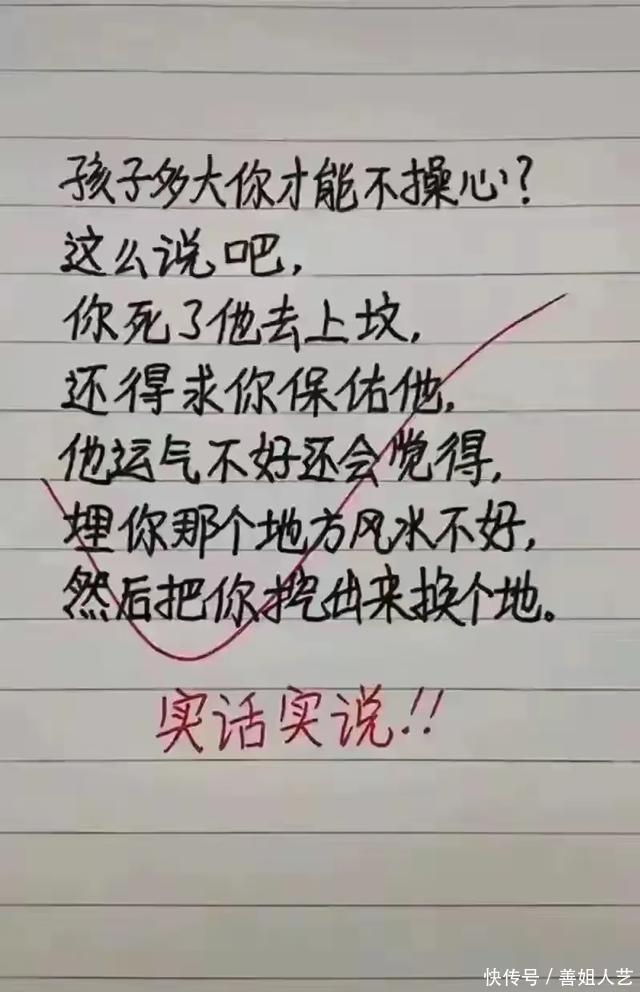 孩子多大你才能不操心?
这么说吧,
你死了他去上坟,
还得求你保佑他,
他运气不好还会觉得,
埋你那个地方风水不好,
然后把你挖出来换个地。
实话实说!!
快传号/善姐人艺